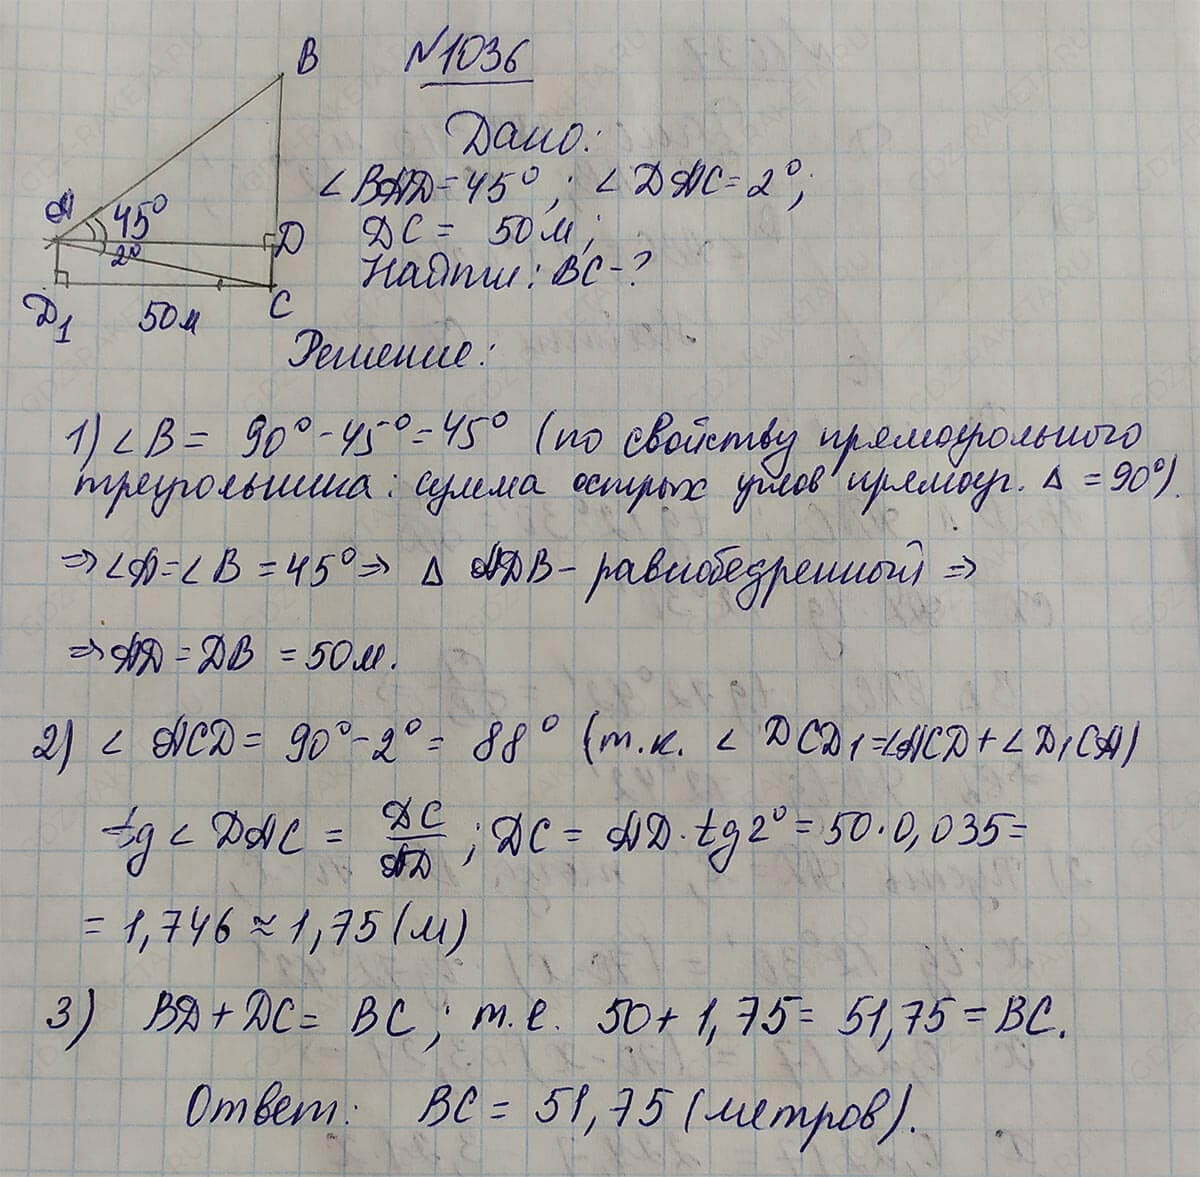 №1036
B
Дано:
A 45°
∠BAD=45°; ∠DAC=2°;
2° D
DC = 50м;
Найти: BC-?
D₁ 50м C
Решение:
1) ∠B = 90°-45°=45° (по свойству прямоугольного
треугольника: сумма острых углов прямоуг. Δ =90°).
⇒∠A=∠B=45°⇒ Δ ADB- равнобедренный ⇒
⇒AD=DB =50м.
2) ∠ ACD= 90°-2°= 88° (т.к. ∠ DCD₁=∠ACD+∠D₁CA)
tg∠DAC = DC/AD ; DC = AD·tg2°=50·0,035=
= 1,746≈1,75(м)
3) BD+DC= BC; т.е. 50+1,75=51,75=BC.
Ответ: BC=51,75(метров).